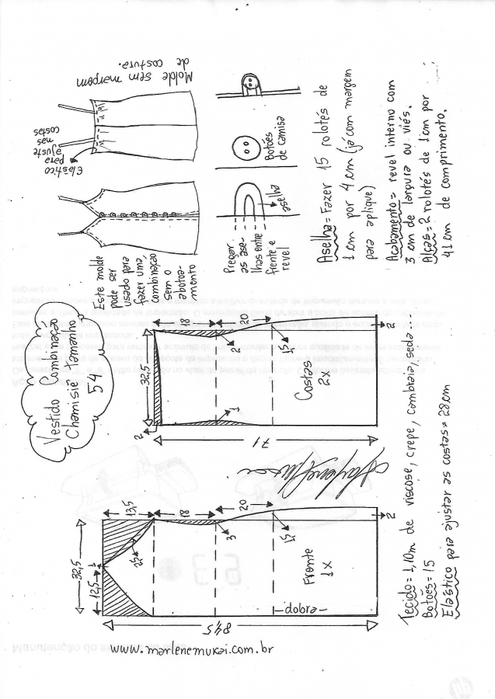 Vestido Combinação
Chamisiê tamanho
54
Este molde
pode ser
usado para
fazer uma
combinação
sem
abotoa-
mento
Elástico
para
ajuste
nas
costas
Molde sem margem
de costura.
Pregar
as ase-
lhas entre
frente e
revel
aselha
Botões
de camisa
Aselha = Fazer 15 rolotés de
1 cm por 4 cm (já com margem
para aplique)
Acabamento = revel interno com
3 cm de largura ou viés.
Alças = 2 rolotés de 1cm por
41 cm de comprimento.
84,5
32,5
12,5
13,5
18
20
2
3
1,5
2
Frente
1x
-dobra-
71
32,5
2
18
20
2
1
1,5
2
Costas
2x
Tecido = 1,10m de viscose, crepe, cambraia, seda...
Botões = 15
Elástico para ajustar as costas = 28cm
www.marlenemukai.com.br